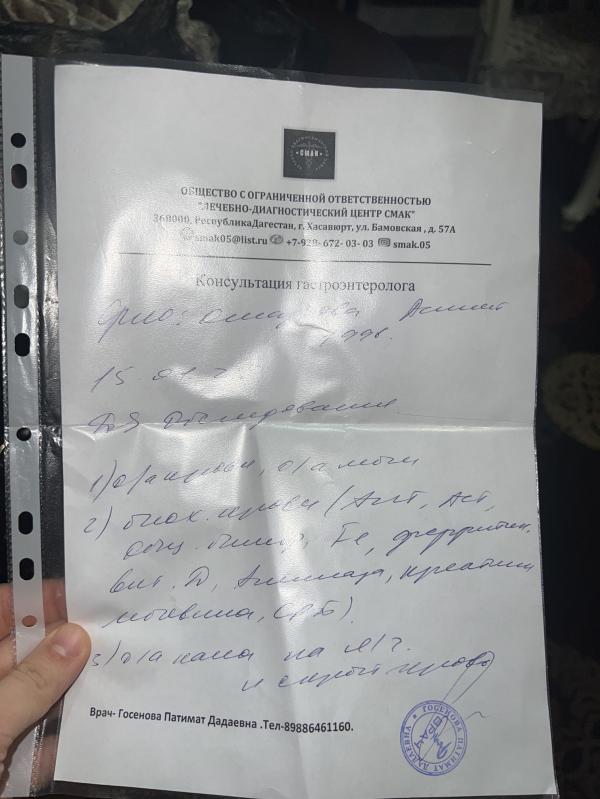 СМАК
ОБЩЕСТВО С ОГРАНИЧЕННОЙ ОТВЕТСТВЕННОСТЬЮ
"ЛЕЧЕБНО-ДИАГНОСТИЧЕСКИЙ ЦЕНТР СМАК"
368000, РеспубликаДагестан, г. Хасавюрт, ул. Бамовская , д. 57А
smak05@list.ru +7-928- 672- 03- 03 smak.05
Консультация гастроэнтеролога
ФИО:
15.01
Обследования
1) о/а крови, о/а мочи
2) биох. крови (АлТ, АсТ,
общ. билир, Fe, ферритин.
Вит. D, Амилаза, креатинин
мочевина, СРБ).
3) о/а кала на я/г.
и скрыт кровь
Врач- Госенова Патимат Дадаевна .Тел-89886461160.
ГОСЕНОВА ПАТИМАТ ДАДАЕВНА
ВРАЧ